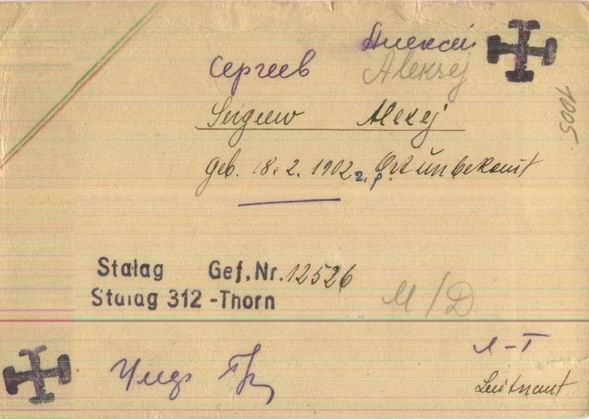 Алексей
Сергеев Aleksej
Sergeew Alexej
geb. 18.2.1902 г.р. Ort unbekannt
1005
Stalag Gef.Nr. 12526
Stalag 312 -Thorn
M/D
л-т
Leutnant